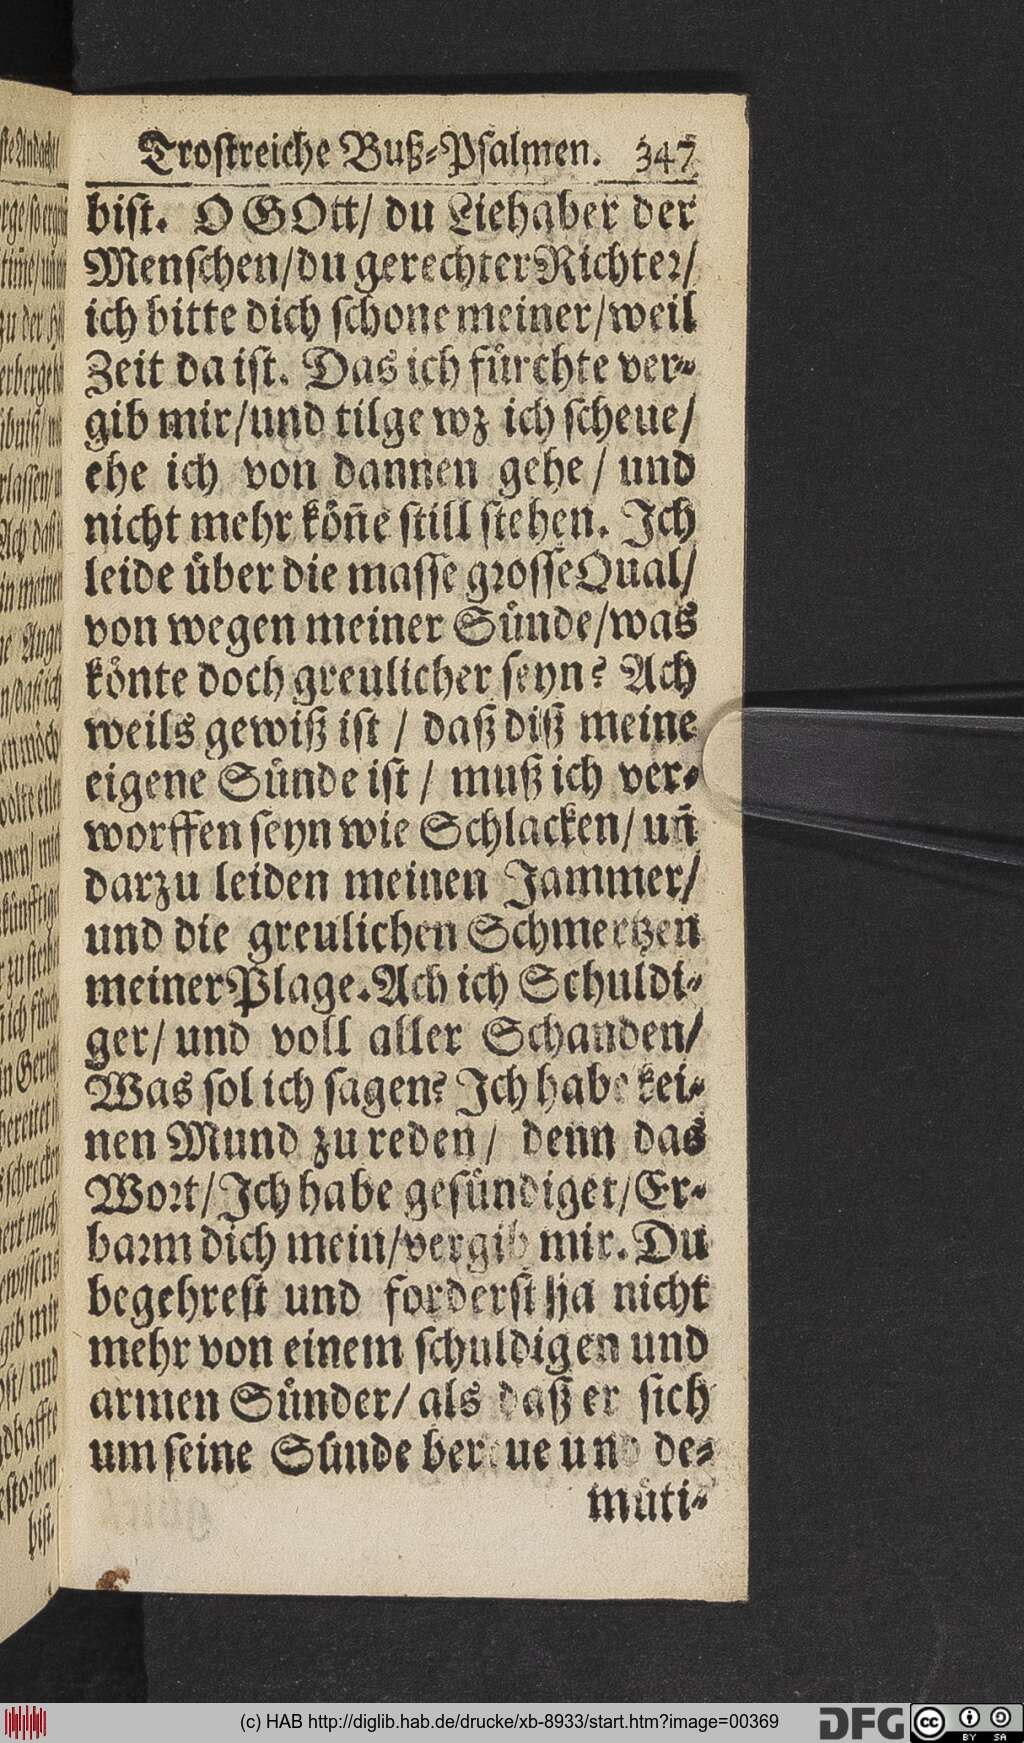 Trostreiche Buß-Psalmen. 347
bist. O GOtt/ du Liehaber der
Menschen/du gerechter Richter/
ich bitte dich schone meiner/weil
Zeit da ist. Das ich fürchte ver-
gib mir/und tilge wz ich scheue/
ehe ich von dannen gehe/ und
nicht mehr köñe still stehen. Ich
leide über die masse grosse Qual/
von wegen meiner Sünde/was
könte doch greulicher seyn? Ach
weils gewiß ist/ daß diß meine
eigene Sünde ist/ muß ich ver-
worffen seyn wie Schlacken/ uñ
darzu leiden meinen Jammer/
und die greulichen Schmertzen
meiner Plage. Ach ich Schuldi-
ger/ und voll aller Schanden/
Was sol ich sagen? Ich habe kei-
nen Mund zu reden/ denn das
Wort/Ich habe gesündiget/Er-
barm dich mein/vergib mir. Du
begehrest und forderst ja nicht
mehr von einem schuldigen und
armen Sünder/ als daß er sich
um seine Sünde bereue und de-
müti-
bist.
(c) HAB http://diglib.hab.de/drucke/xb-8933/start.htm?image=00369
DFG
cc BY SA